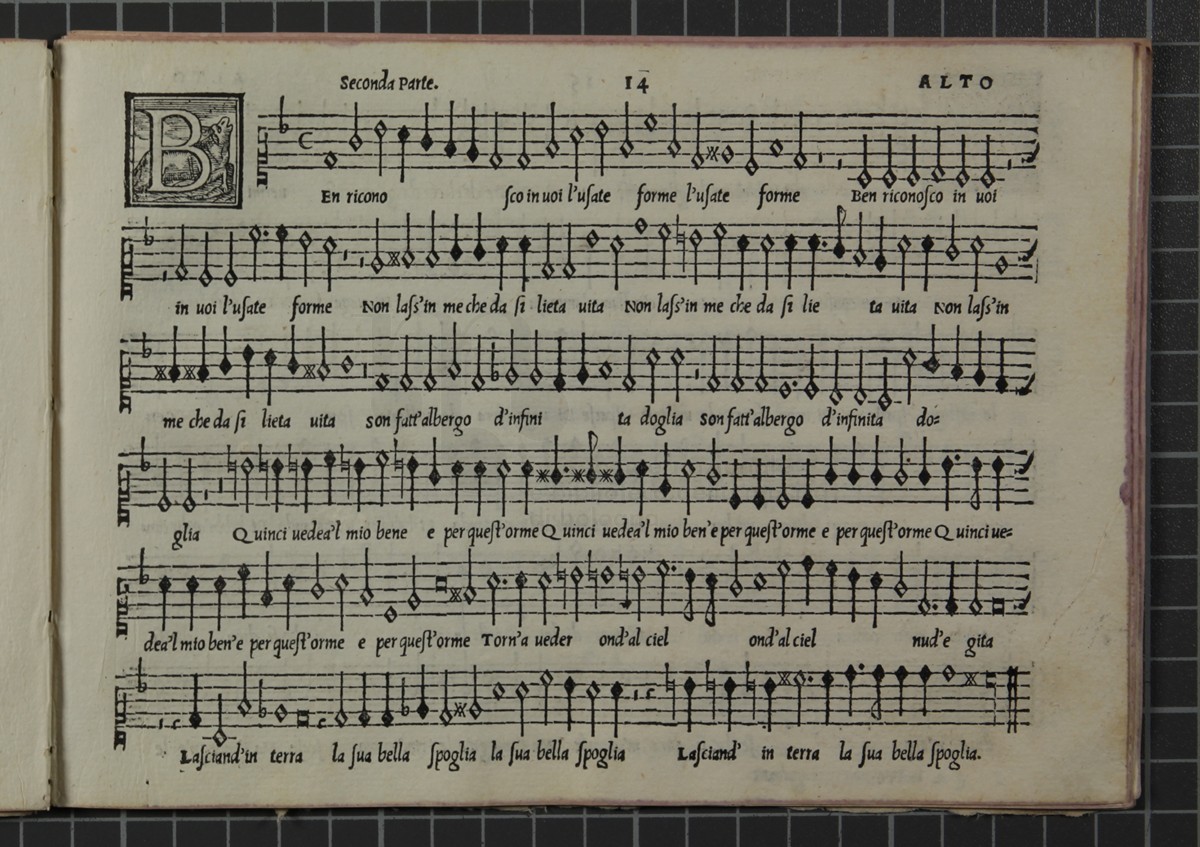 Seconda Parte. 14 ALTO
B
En ricono ſco in uoi l'uſate forme l'uſate forme Ben riconoſco in uoi
in uoi l'uſate forme Non laſs'in me che da ſi lieta uita Non laſs'in me che da ſi lie ta uita Non laſs'in
me che da ſi lieta uita son fatt'albergo d'infini ta doglia son fatt'albergo d'infinita do=
glia Quinci uedea'l mio bene e per queſt'orme Quinci uedea'l mio ben'e per queſt'orme e per queſt'orme Quinci ue=
dea'l mio ben'e per queſt'orme e per queſt'orme Torn'a ueder ond'al ciel ond'al ciel nud'e gita
Laſciand'in terra la ſua bella ſpoglia la ſua bella ſpoglia Laſciand' in terra la ſua bella ſpoglia.